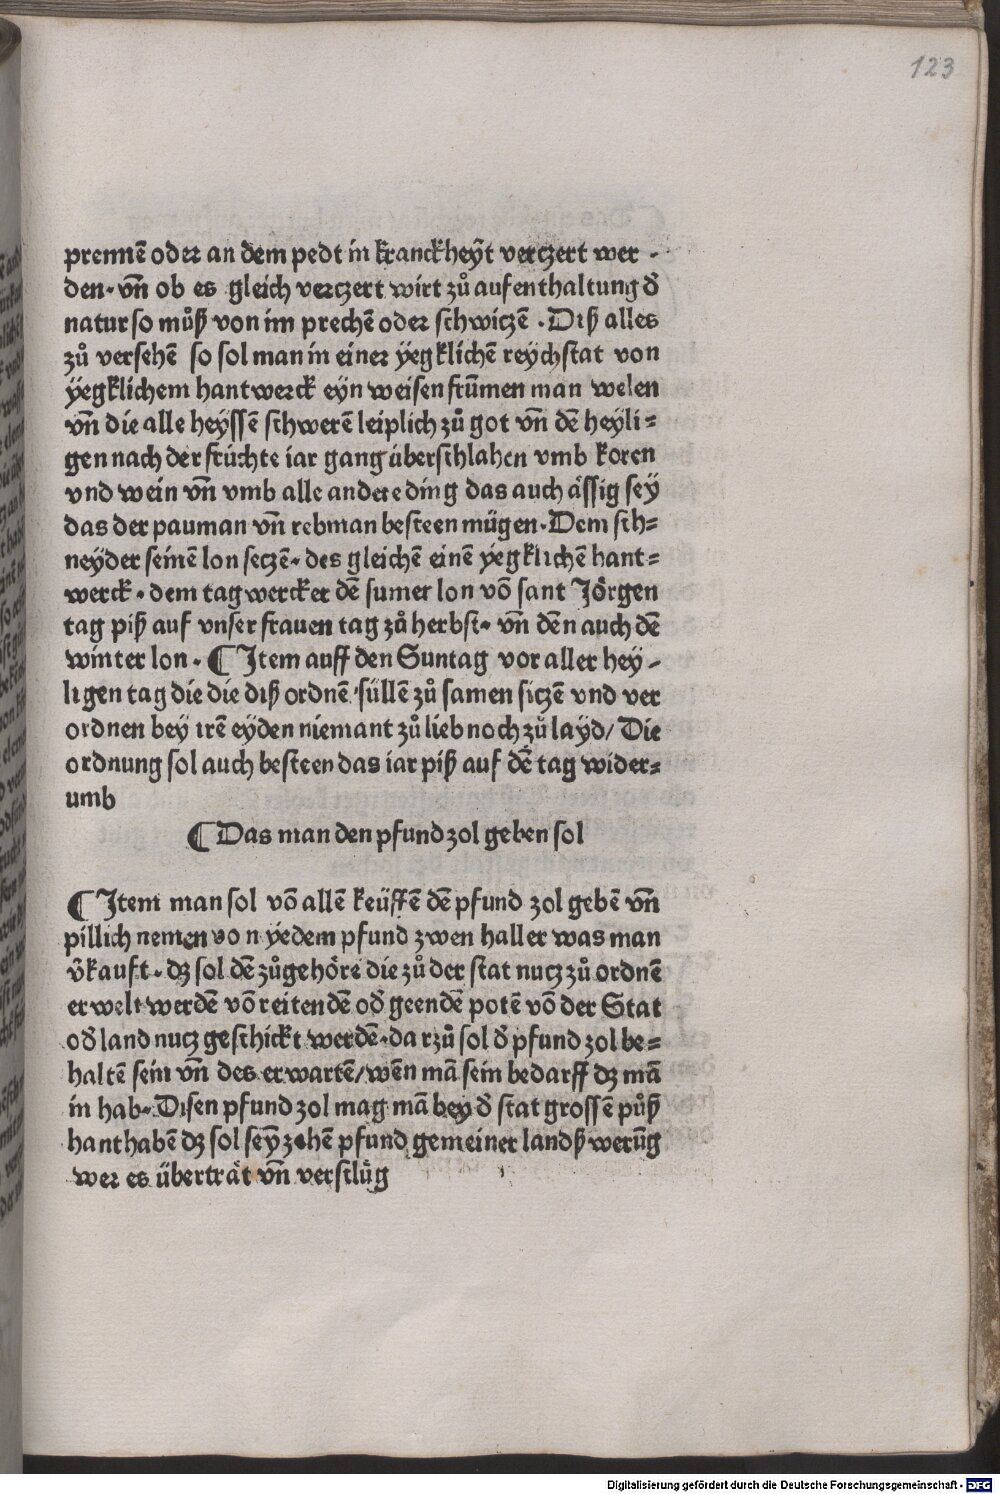 123
prennē oder an dem pedt in kranckheyt̄ verczert wer -
den· vn̄ ob es gleich verczert wirt zů aufenthaltung d̓
natur so můß von im prechē oder schwiczē · Diß alles
zů versehē so sol man in einer yegklichē reychstat von
yegklichem hantwerck eyn weisen frūmen man welen
vn̄ die alle heyssē schwerē leiplich zů got vn̄ dē heyli=
gen nach der früchte iar gang überschlahen vmb koren
vnd wein vn̄ vmb alle andere ding das auch ässig sey
das der pauman vn̄ rebman besteen mügen· Dem sch=
neyder seinē lon seczē· des gleichē einē yegklichē hant=
werck· dem tagwercker dē sumer lon vō sant Jörgen
tag piß auf vnser frauen tag zů herbst· vn̄ dēn auch dē
winter lon· ¶ Item auff den Suntag vor aller hey -
ligen tag die die diß ordnē süllē zů samen siczē vnd ver
ordnen bey irē eyden niemant zů lieb noch zů layd/ Die
ordnung sol auch besteen das iar piß auf dē tag wider=
umb
¶ Das man den pfund zol geben sol
¶ Item man sol vō allē keüffē dē pfund zol gebē vn̄
pillich nemen von yedem pfund zwen haller was man
v̓kauft· dʒ sol dē zůgehörē die zů der stat nucz zů ordnē
erwelt werdē vō reitendē od̓ geendē potē vō der Stat
od̓ land nucz geschickt werdē· darzů sol d̓ pfund zol be=
haltē sein vn̄ des erwartē/ wēn mā sein bedarff dʒ mā
in hab· Disen pfund zol mag mā bey d̓ stat grossē půß
hanthabē dʒ sol seȳ zehē pfund gemeiner landß werūg
wer es überträt vn̄ verslüg
Digitalisierung gefördert durch die Deutsche Forschungsgemeinschaft - DFG